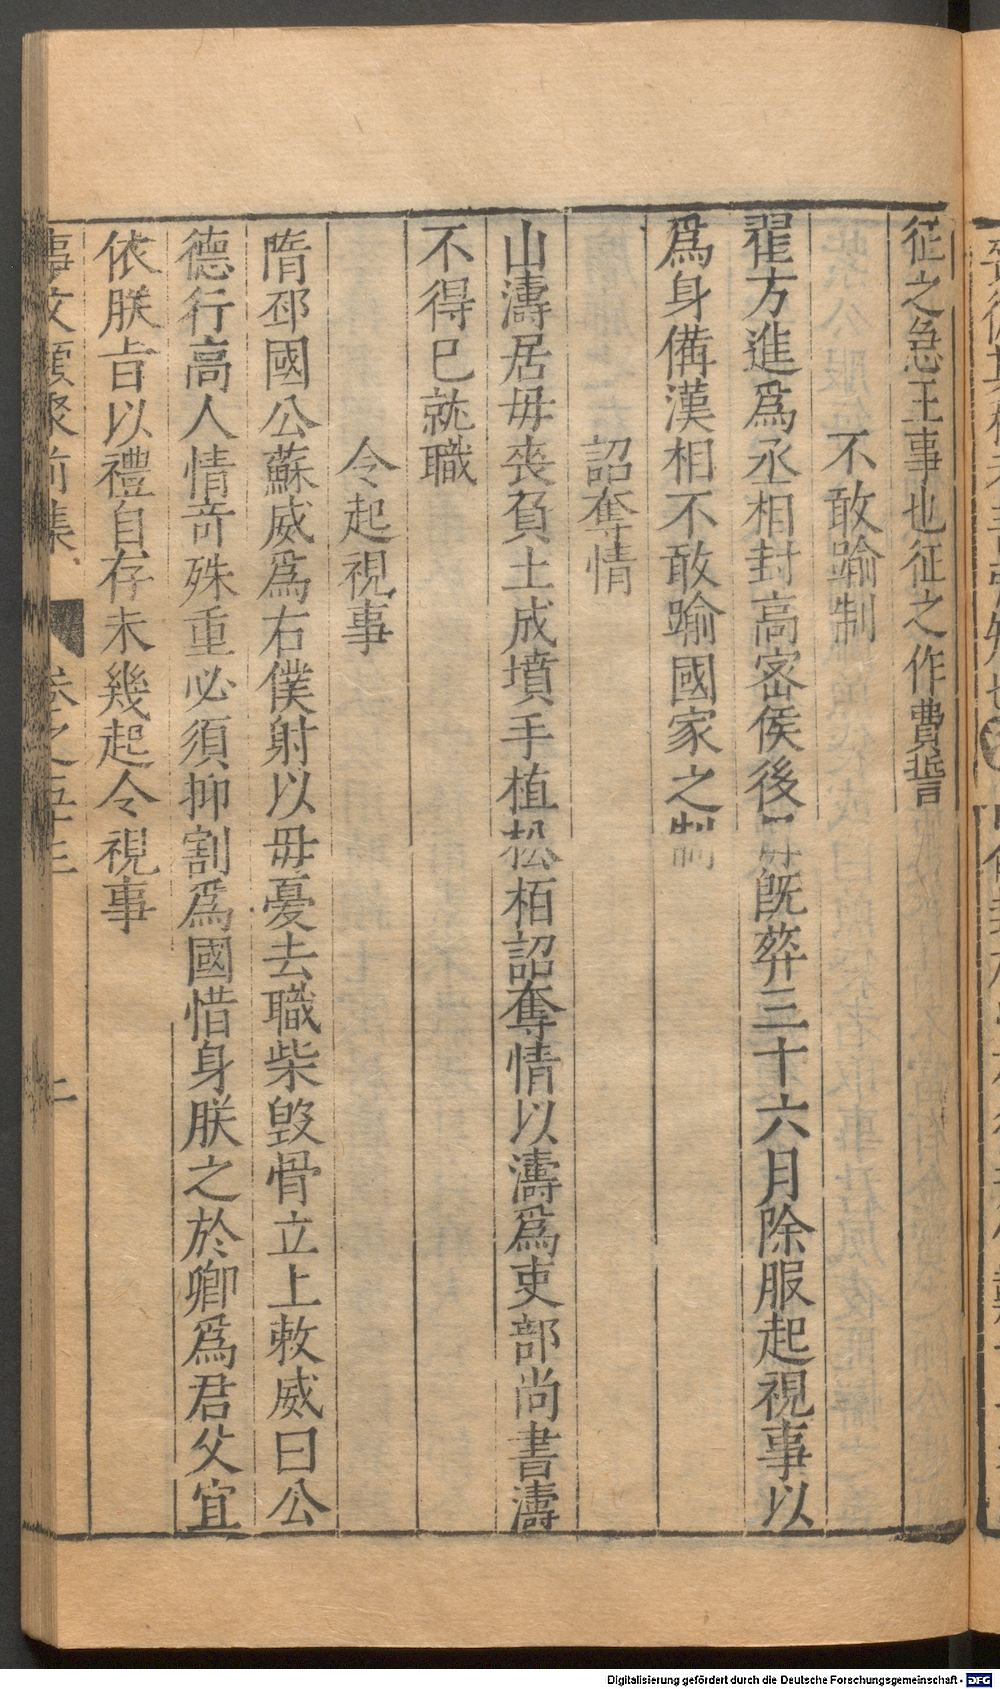 征之急王事也征之作費誓
不敢踰制
翟方進爲丞相封高密侯後母旣葬三十六月除服起視事以
爲身備漢相不敢踰國家之制
詔奪情
山濤居毋喪負土成墳手植松栢詔奪情以濤爲吏部尚書濤
不得已就職
令起視事
隋邳國公蘇威爲右僕射以毋憂去職柴毀骨立上敕威曰公
德行高人情竒殊重必須抑割爲國惜身朕之於卿爲君父宜
依朕旨以禮自存未幾起令視事
事文類聚前集 卷之五十三 二
Digitalisierung gefördert durch die Deutsche Forschungsgemeinschaft - DFG